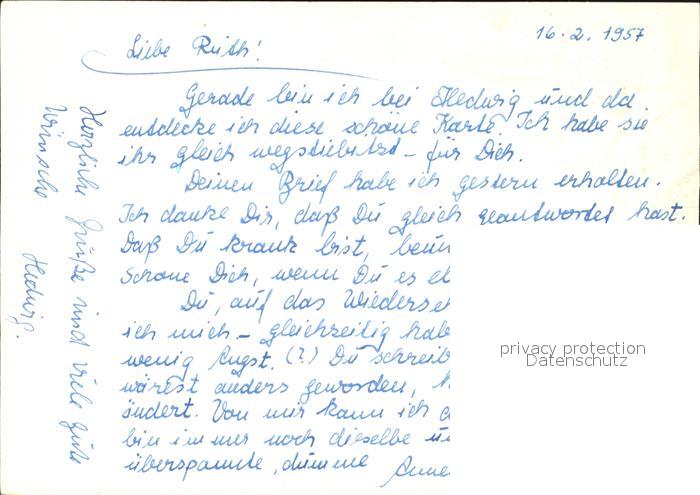 16.2.1957
Liebe Ruth!
Gerade bin ich bei Hedwig und da
entdecke ich diese schöne Karte. Ich habe sie
ihr gleich wegstiebitzt – für Dich.
Deinen Brief habe ich gestern erhalten.
Ich danke Dir, daß Du gleich geantwortet hast.
Daß Du krank bist,
Schone Dich, wenn Du es
Du, auf das
ich mich – gleichzeitig
wenig Angst. (?) Du
wärest anders geworden,
ändert. Von mir kann ich
bin immer noch dieselbe
überspannte, dumme
Herzliche Grüße und viele gute
Wünsche Hedwig.
privacy protection
Datenschutz